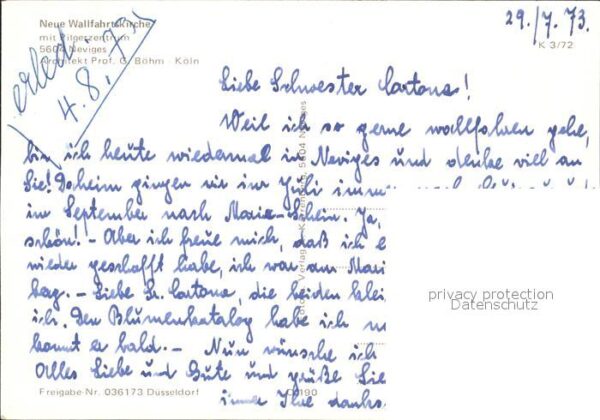 Neue Wallfahrtskirche
mit Pilgerzentrum
5604 Neviges
Architekt Prof. G. Böhm · Köln
erled.
4.8.73
29./7.73.
K 3/72
Liebe Schwester Cartona!
Weil ich so gerne wallfahren gehe,
bin ich heute wiedermal in Neviges und denke viel an
Sie! Daheim gingen wir im Juli imm
im September nach Maria-Schein. Ja,
schön! - Aber ich freue mich, daß ich e
wieder geschafft habe, ich war am Mari
tag. - Liebe Sr. Cartona, die beiden klei
ich. Den Blumenkatalog habe ich
kommt er bald. - Nun wünsche ich
Alles Liebe und Gute und grüße Sie
immer Ihre dankb.
Verlag
5604 Neviges
privacy protection
Datenschutz
Freigabe-Nr. 036173 Düsseldorf
190